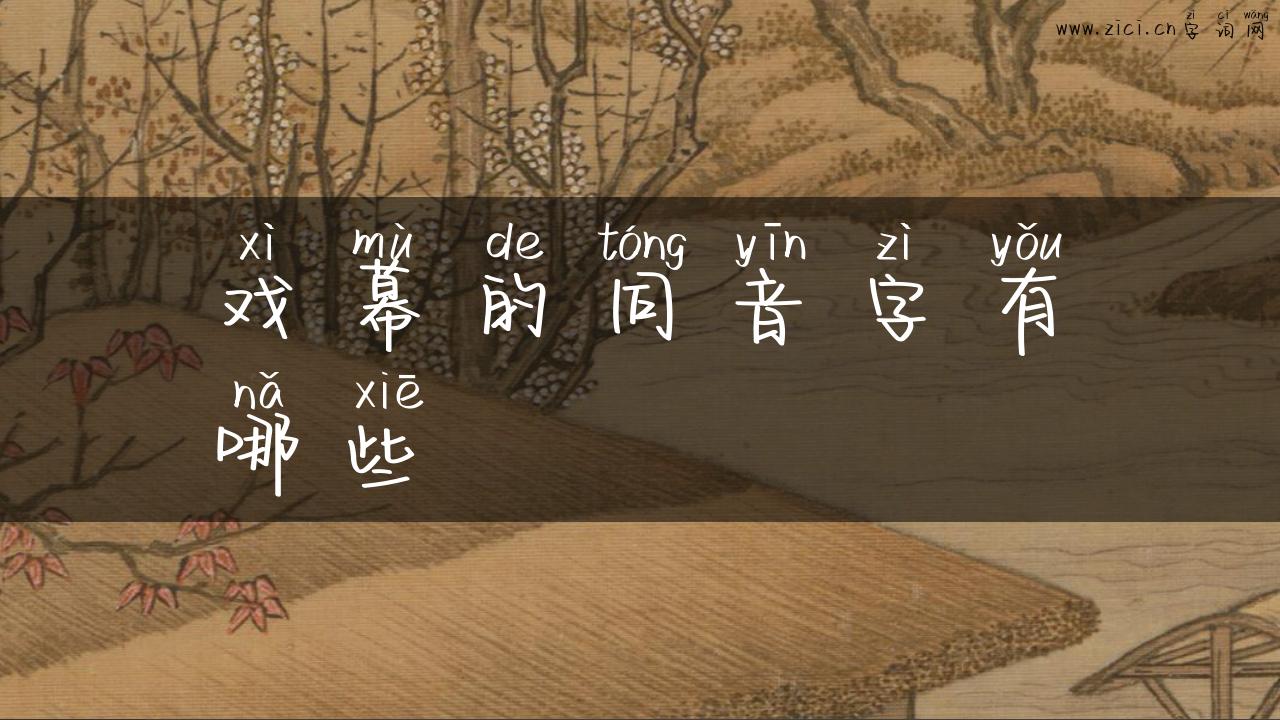 zì cí wǎng
www.zici.cn字词网
xì mù de tóng yīn zì yǒu
戏幕的同音字有
nǎ xiē
哪些